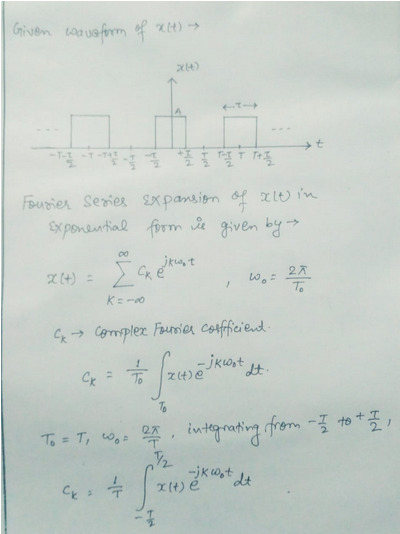 Given waveform of x(t) →
x(t)
A
← τ →
... ...
-T-τ/2 -T -T+τ/2 -T/2 -τ/2 +τ/2 T/2 T-τ/2 T T+τ/2 → t
Fourier Series Expansion of x(t) in
exponential form is given by →
x(t) = ∑_{K=-∞}^{∞} C_K e^{jkω₀t} , ω₀ = 2π/T₀
C_K → Complex Fourier Coefficient.
C_K = 1/T₀ ∫_{T₀} x(t) e^{-jkω₀t} dt.
T₀ = T, ω₀ = 2π/T, integrating from -T/2 to +T/2,
C_K = 1/T ∫_{-T/2}^{T/2} x(t) e^{-jkω₀t} dt